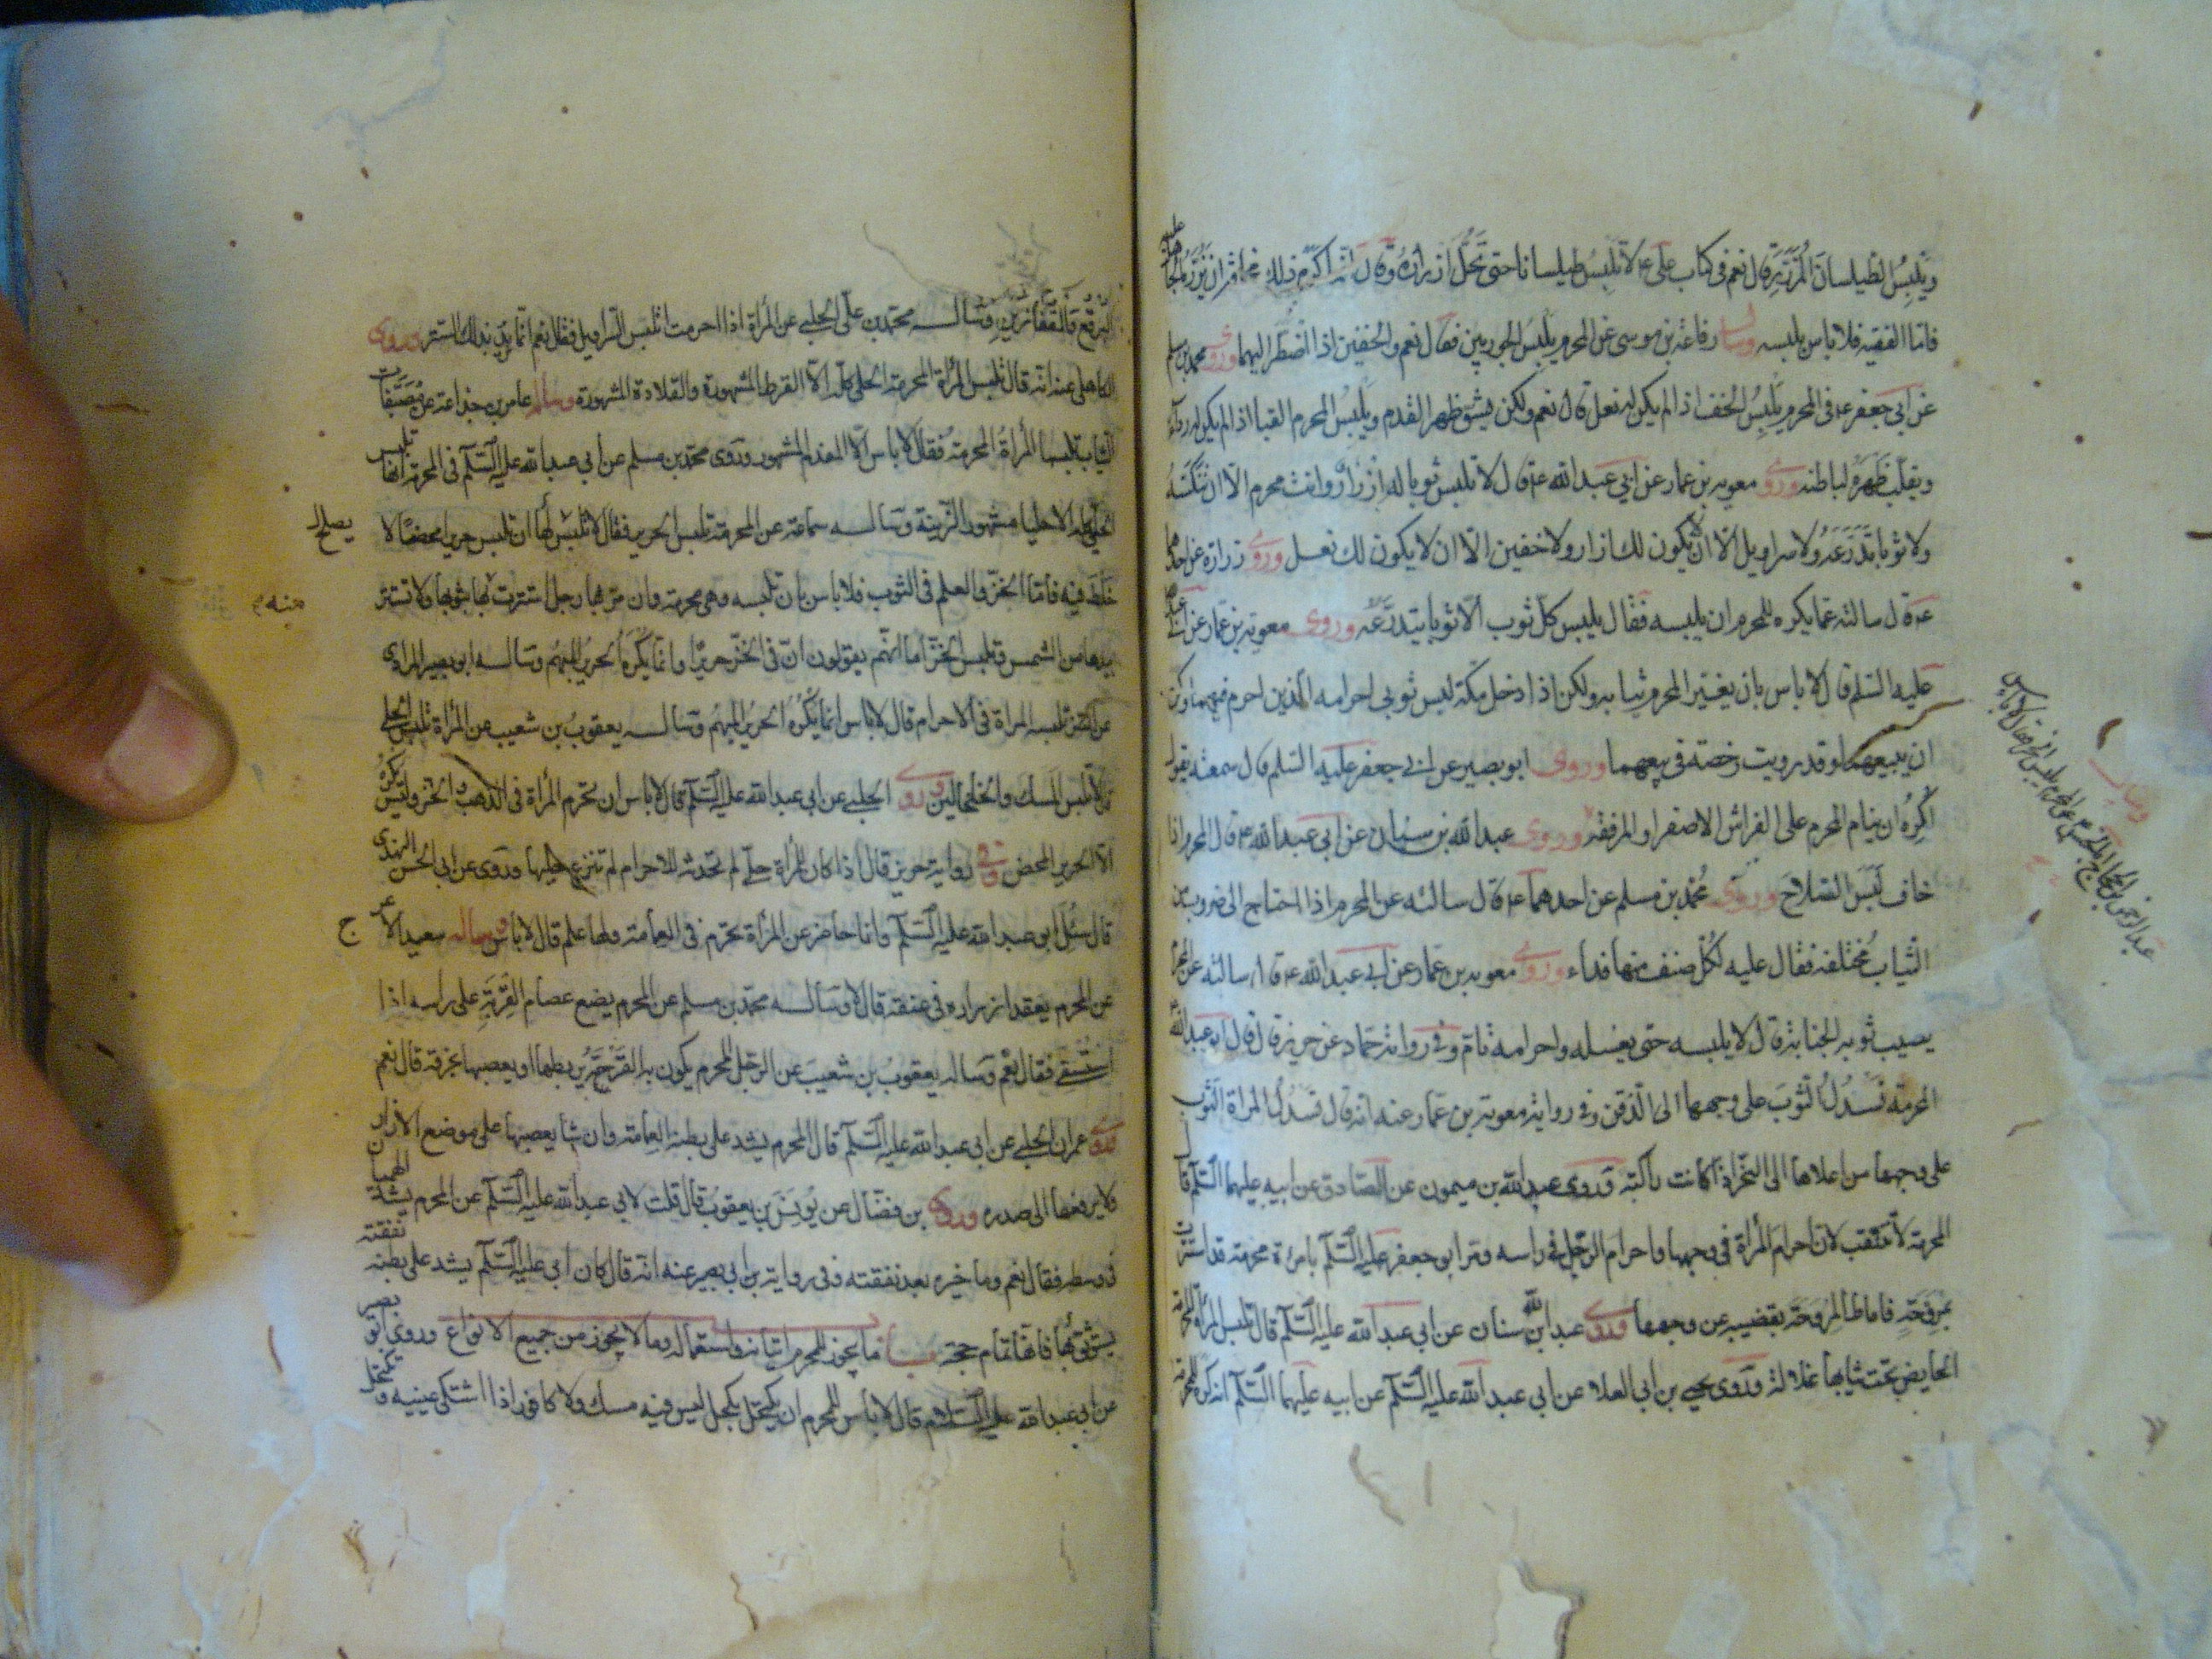 ويلبس الطيلسان المزرر قال نعم في كتاب علي ع لا تلبس طيلسانا حتى تحل ازراره وقال انما كره ذلك مخافة ان يزره الجاهل عليه
فاما الفقيه فلا باس بلبسه وساله رفاعة بن موسى عن المحرم يلبس الجوربين فقال نعم والخفين اذا اضطر اليهما وروى محمد بن مسلم
عن ابي جعفر ع في المحرم يلبس الخف اذا لم يكن له نعل قال نعم ولكن يشق ظهر القدم ويلبس المحرم القبا اذا لم يكن له رداء
ويقلب ظهره لباطنه وروى معوية بن عمار عن ابي عبد الله ع قال لا تلبس ثوبا له ازرار وانت محرم الا ان تنكسه
ولا ثوبا تدرعه ولا سراويل الا ان لا يكون لك ازار ولا خفين الا ان لا يكون لك نعل وروى زرارة عن احدهما
ع قال سالته عما يكره للمحرم ان يلبسه فقال يلبس كل ثوب الا ثوبا يتدرعه وروى معوية بن عمار عن ابي عبد الله
عليه السلم قال لا باس بان يغير المحرم ثيابه ولكن اذا دخل مكة لبس ثوبي احرامه الذين احرم فيهما وكره
ان يبيعهما وقد رويت رخصة في بيعهما وروى ابو بصير عن ابي جعفر عليه السلم قال سمعته يقول
اكره ان ينام المحرم على الفراش الاصفر او المرفقة وروى عبد الله بن سنان عن ابي عبد الله ع قال المحرم اذا
خاف لبس السلاح وروى محمد بن مسلم عن احدهما ع قال سالته عن المحرم اذا احتاج الى ضروب من
الثياب مختلفة فقال عليه لكل صنف منها فداء وروى معوية بن عمار عن ابي عبد الله ع قال سالته عن المحرم
يصيب ثوبه الجنابة قال لا يلبسه حتى يغسله واحرامه تام وفي رواية حماد عن حريز قال قال ابو عبد الله
المحرمة تسدل الثوب على وجهها الى الذقن وفي رواية معوية بن عمار عنه انه قال تسدل المراة الثوب
على وجهها من اعلاها الى النحر اذا كانت راكبة وروى عبد الله بن ميمون عن الصادق عن ابيه عليهما السلم قال
المحرمة لا تتنقب لان احرام المرأة في وجهها واحرام الرجل في راسه ومر ابو جعفر عليه السلم بامرءة محرمة قد استترت
بمروحة فاماط المروحة بقضيبه عن وجهها وروى عبد الله بن سنان عن ابي عبد الله عليه السلم قال تلبس المرأة المحرمة
الحايض تحت ثيابها غلالة وروى يحيى بن ابي العلا عن ابي عبد الله عليه السلم عن ابيه عليهما السلم انه كره للمحرمة
البرقع والقفازين وساله محمد بن علي الحلبي عن المرأة اذا احرمت اتلبس السراويل فقال نعم انما يزيد بذلك الستر وروى
الكاهلي عنه انه قال تلبس المرأة المحرمة الحلي كله الا القرط المشهورة والقلادة المشهورة وساله عامر بن جذاعة عن مصبغات
الثياب تلبسها المرأة المحرمة فقال لا باس الا المفدم المشهور وروى محمد بن مسلم عن أبي عبد الله عليه السلم في المحرمة انها تلبس
الحلي كله الا حليا مشهورا للزينة وساله سماعة عن المحرمة تلبس الحرير فقال لا يصلح لها ان تلبس حريرا محضا لا
خلط فيه فاما الخز والعلم في الثوب فلا باس بان تلبسه وهي محرمة وان مر بها رجل استترت منه بثوبها ولا تستتر
بيدها من الشمس وتلبس الخز اما انهم يقولون ان في الخز حريرا وانما يكره الحرير المبهم وساله ابو بصير المرادي
عن القز تلبسه المراة في الاحرام قال لا باس انما يكره الحرير المبهم وساله يعقوب بن شعيب عن المرأة تلبس الحلي
قال تلبس المسك والخلخالين وروى الحلبي عن ابي عبد الله عليه السلم قال لا باس ان تحرم المرأة في الذهب والخز وليس يكره
الا الحرير المحض وفي رواية حريز قال اذا كان للمرأة حلي لم تحدثه للاحرام لم تنزع حليها وروى عن ابي الحسن النهدي
قال سئل ابو عبد الله عليه السلم وانا حاضر عن المرأة تحرم في العمامة ولها علم قال لا باس وساله سعيد الاعرج
عن المحرم يعقد ازراره في عنقه قال لا وساله محمد بن مسلم عن المحرم يضع عصام القربة على راسه اذا
استسقى فقال نعم وساله يعقوب بن شعيب عن الرجل المحرم يكون به القرحة يربطها او يعصبها بخرقة قال نعم
وروى عمران الحلبي عن ابي عبد الله عليه السلم قال المحرم يشد على بطنه العمامة وان شا يعصبها على موضع الازار
ولا يرفعها الى صدره وروى بن فضال عن يونس بن يعقوب قال قلت لابي عبد الله عليه السلم عن المحرم يشد الهميان
في وسطه فقال نعم وما خيره بعد نفقته وفي رواية بن ابي بصير عنه انه قال كان أبي عليه السلم يشد على بطنه نفقته
يستوثق بها فانها تمام حجه باب ما يجوز للمحرم اتيانه واستعماله وما لا يجوز من جميع الانواع وروى ابو بصير
عن ابي عبد الله عليه السلام قال لا باس للمحرم ان يكتحل بكحل ليس فيه مسك ولا كافور اذا اشتكى عينيه وتكتحل